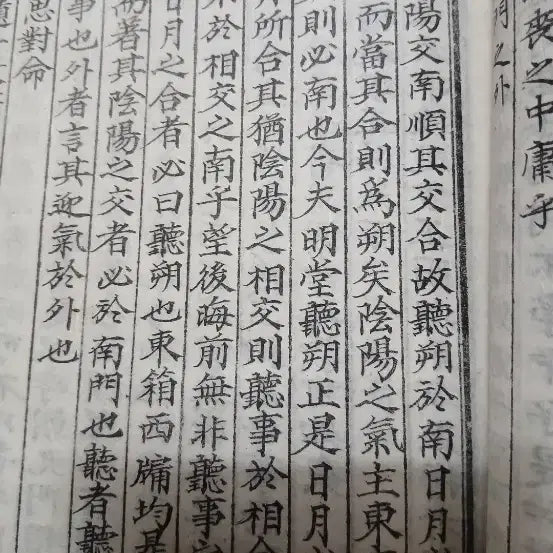 喪之中庸乎
門之外
陽交南順其交合故聽朔於南日月
而當其合則為朔矣陰陽之氣主東
則必南也今夫明堂聽朔正是日月
所合其猶陰陽之相交則聽事於相合
於相交之南乎望後晦前無非聽事
日月之合者必曰聽朔也東箱西牖均是
而著其陰陽之交者必於南門也聽者聽
事也外者言其迎氣於外也
思對命